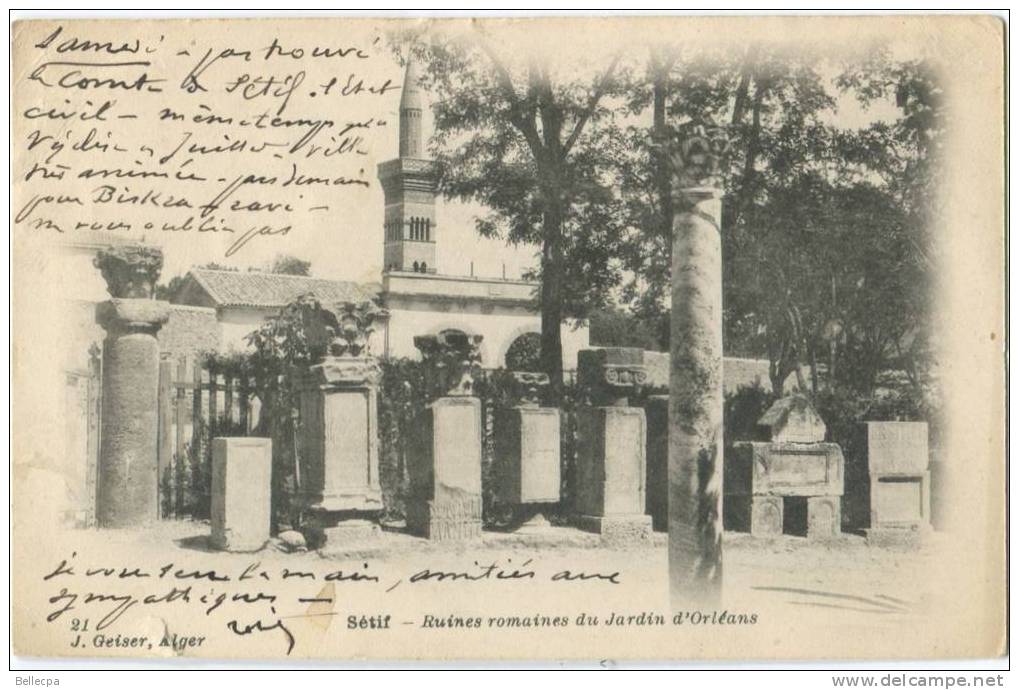 Samedi - pas trouvé
le Comte à Sétif. l'état
civil - même temps qu'à
en Juillet - ville
très animée - pars demain
pour Biskra - ravi -
ne vous oublie pas
je vous serre la main, amitiés aux
sympathiques -
21
J. Geiser, Alger
Sétif - Ruines romaines du Jardin d'Orléans
Bellecpa
www.delcampe.net